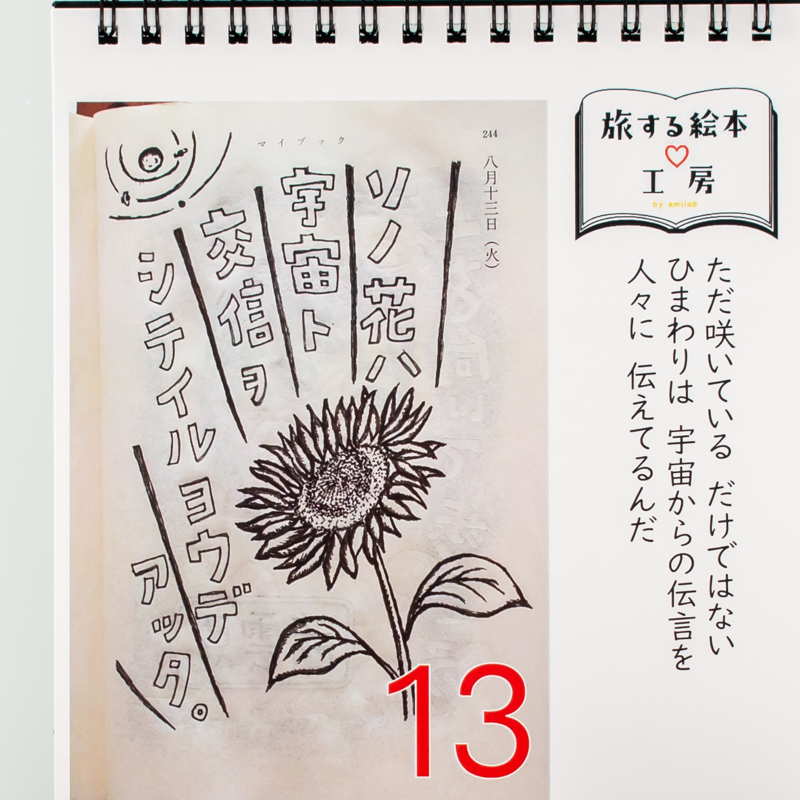 マイブック
244
八月十三日（火）
ソノ花ハ
宇宙ト
交信ヲ
シテイルヨウデ
アッタ。
13
旅する絵本
工房
by emilab
ただ咲いている だけではない
ひまわりは 宇宙からの伝言を
人々に 伝えてるんだ